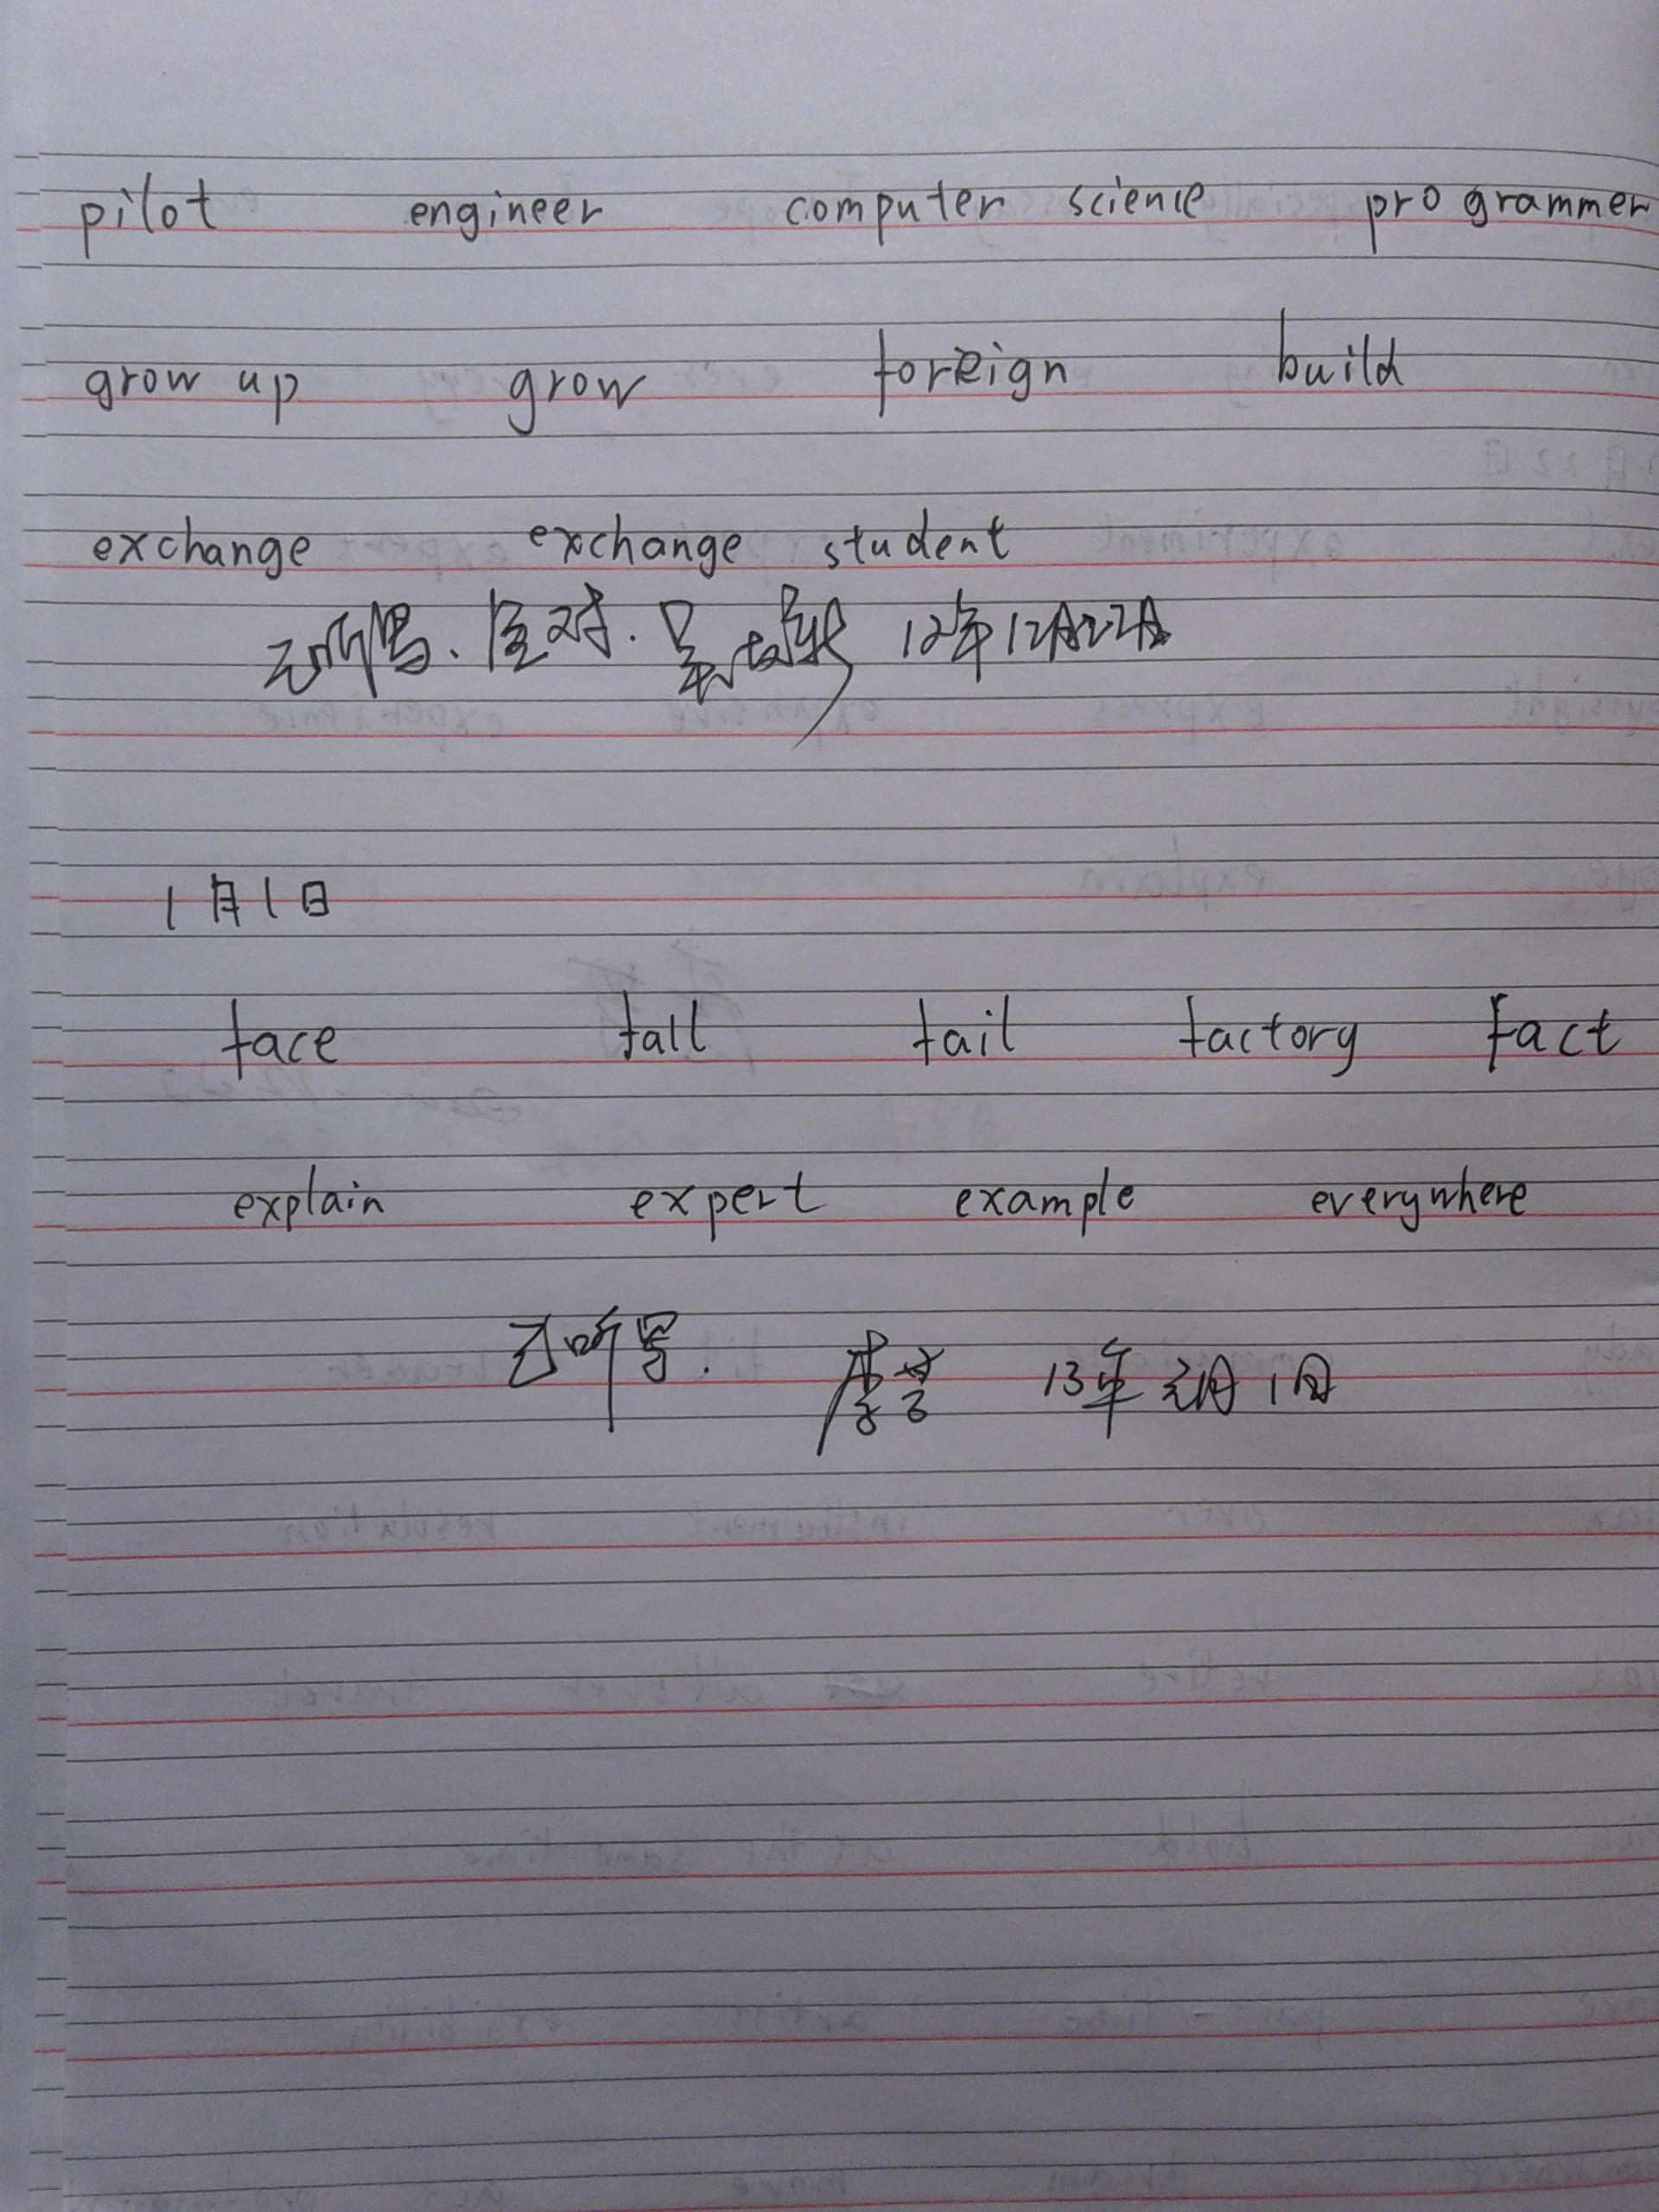 pilot engineer computer science programmer
grow up grow foreign build
exchange exchange student
已听写. 全对. 12年12月22日
1月1日
face fall fail factory fact
explain expert example everywhere
已听写. 13年 1日